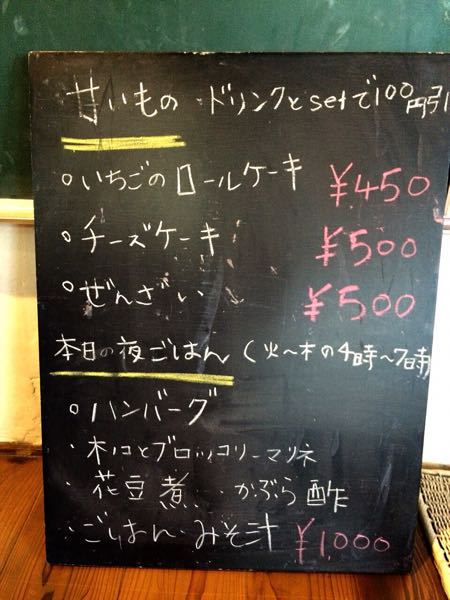 甘いもの ・ドリンクとsetで100円引
○いちごのロールケーキ ¥450
○チーズケーキ ¥500
○ぜんざい ¥500
本日の夜ごはん (火〜木の4時〜7時)
○ハンバーグ
・木ノコとブロッコリーマリネ
・花豆煮 ・かぶら酢
・ごはん・みそ汁 ¥1,000